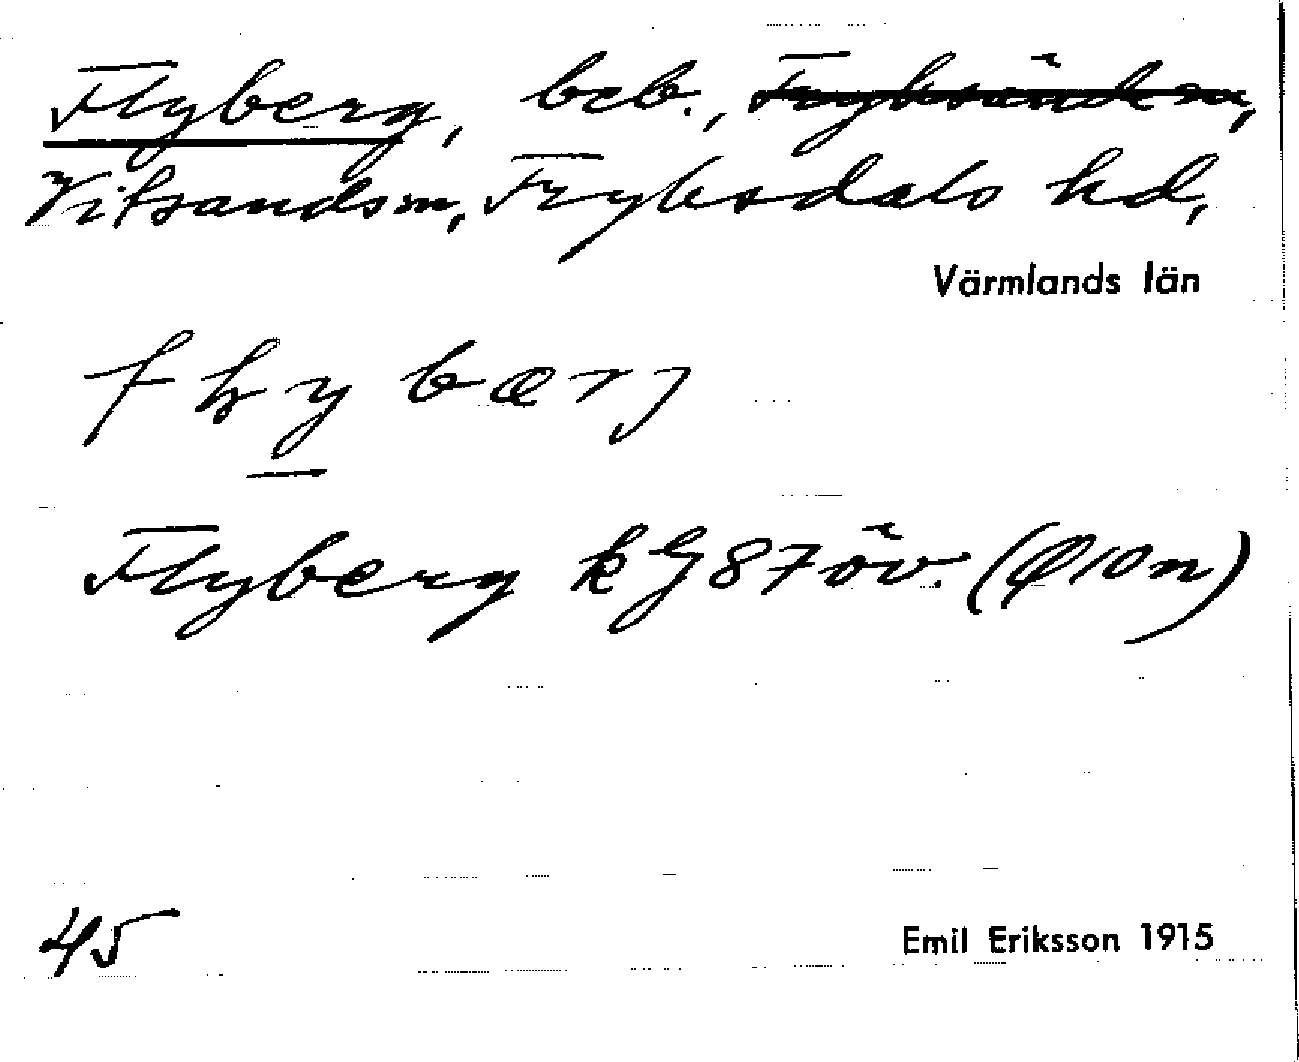 Flyberg, beb., Fryksände sn,
Vitsands sn, Fryksdals hd,
Värmlands län
flybærj
Flyberg kG 87 öv. (Ø 10 n)
45
Emil Eriksson 1915